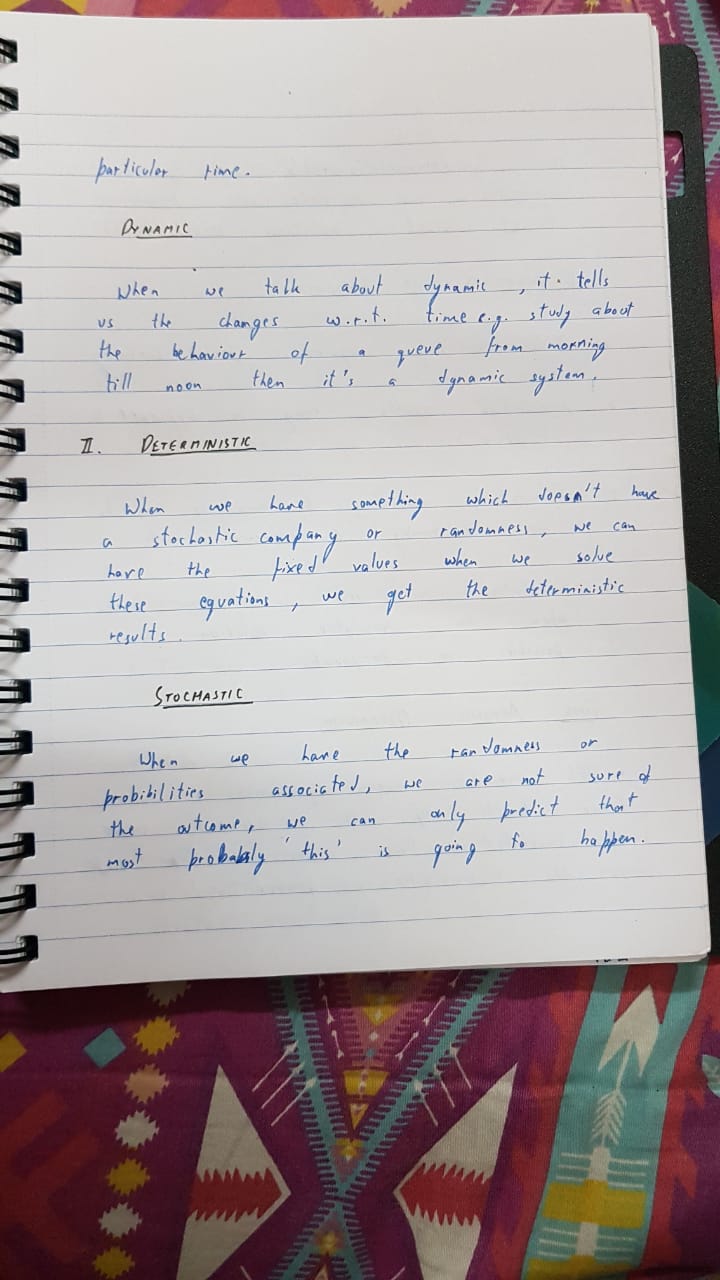 particular time.
DYNAMIC
When we talk about dynamic, it tells
us the changes w.r.t. time e.g. study about
the behaviour of a queue from morning
till noon then it's a dynamic system.
II. DETERMINISTIC
When we have something which doesn't have
a stochastic company or randomness, we can
have the fixed values when we solve
these equations, we get the deterministic
results.
STOCHASTIC
When we have the randomness or
probibilities associated, we are not sure of
the outcome, we can only predict that
most probabaly 'this' is going to happen.